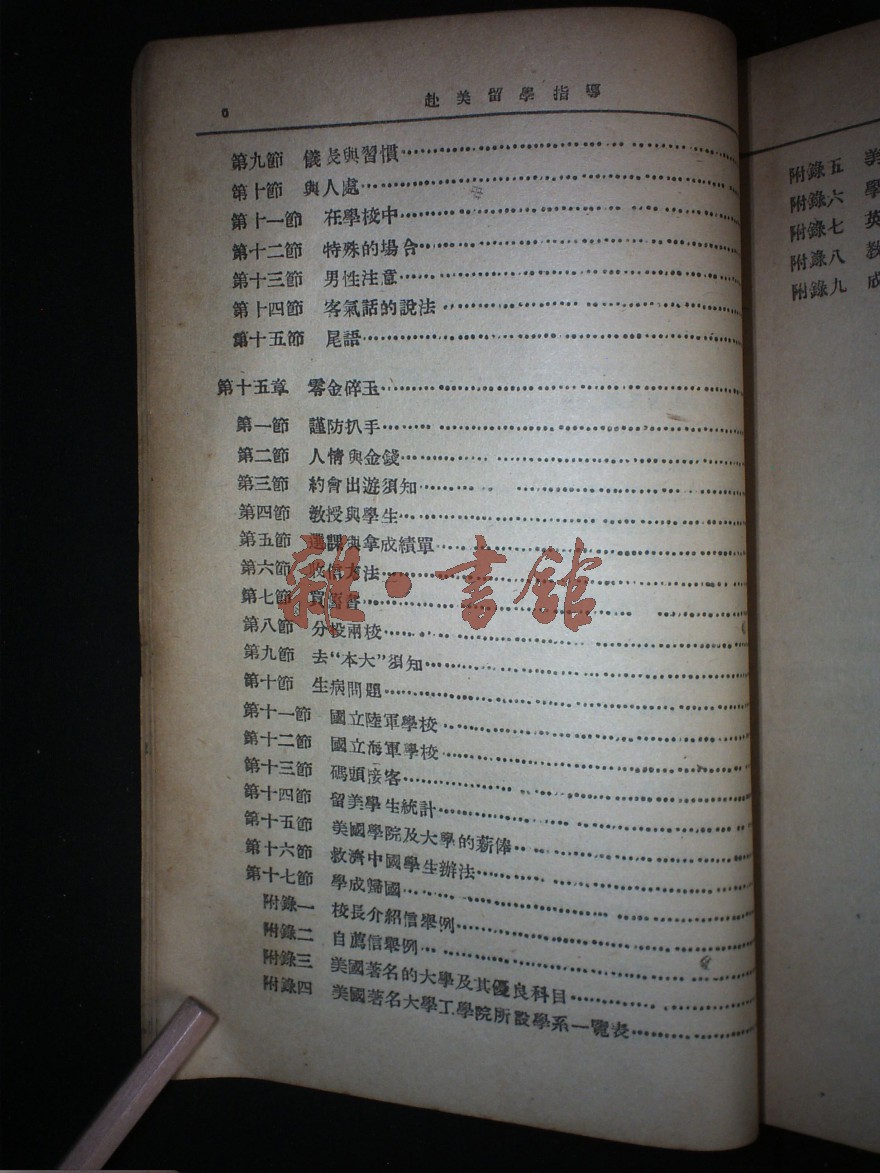 6
赴美留學指導
第九節 儀表與習慣
第十節 與人處
第十一節 在學校中
第十二節 特殊的場合
第十三節 男性注意
第十四節 客氣話的說法
第十五節 尾語
第十五章 零金碎玉
第一節 謹防扒手
第二節 人情與金錢
第三節 約會出遊須知
第四節 教授與學生
第五節 選課與拿成績單
第六節 收信方法
第七節 買舊書
第八節 分投兩校
第九節 去“本大”須知
第十節 生病問題
第十一節 國立陸軍學校
第十二節 國立海軍學校
第十三節 碼頭接客
第十四節 留美學生統計
第十五節 美國學院及大學的薪俸
第十六節 救濟中國學生辦法
第十七節 學成歸國
附錄一 校長介紹信舉例
附錄二 自薦信舉例
附錄三 美國著名的大學及其優良科目
附錄四 美國著名大學工學院所設學系一覽表
附錄五 美
附錄六 學
附錄七 英
附錄八 教
附錄九 成
雜·書館